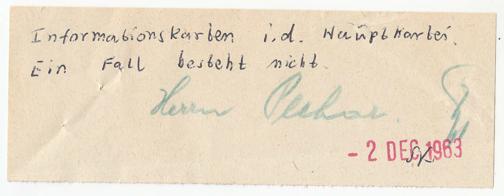 Informationskarten i.d. Hauptkartei.
Ein Fall besteht nicht.
Herrn Pechar.
- 2 DEC 1963